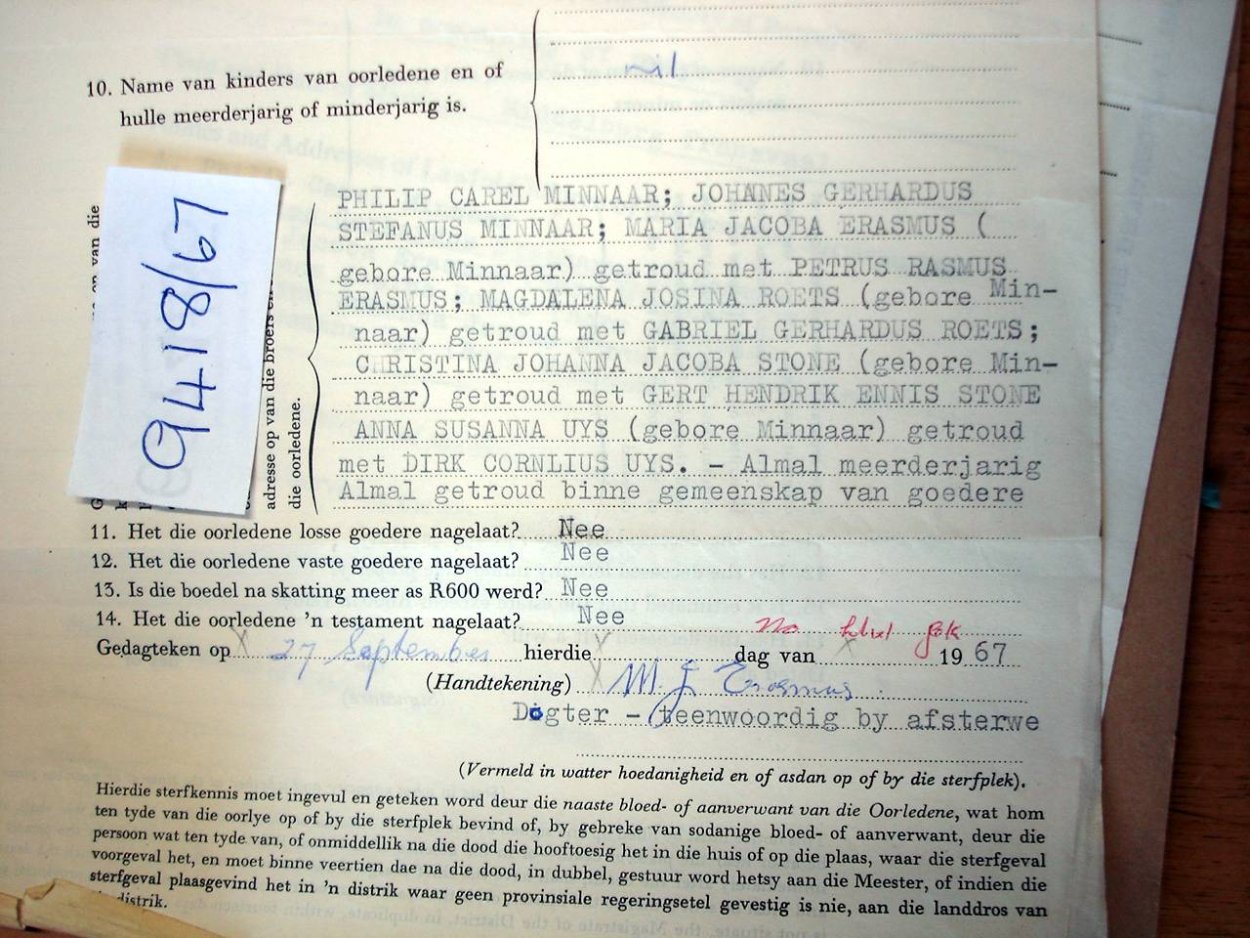 nil
10. Name van kinders van oorledene en of
hulle meerderjarig of minderjarig is.
9418/67
op van die
adresse op van die broers en
die oorledene.
PHILIP CAREL MINNAAR; JOHANES GERHARDUS
STEFANUS MINNAAR; MARIA JACOBA ERASMUS (
gebore Minnaar) getroud met PETRUS RASMUS
ERASMUS; MAGDALENA JOSINA ROETS (gebore Min-
naar) getroud met GABRIEL GERHARDUS ROETS;
CHRISTINA JOHANNA JACOBA STONE (gebore Min-
naar) getroud met GERT HENDRIK ENNIS STONE
ANNA SUSANNA UYS (gebore Minnaar) getroud
met DIRK CORNLIUS UYS. - Almal meerderjarig
Almal getroud binne gemeenskap van goedere
11. Het die oorledene losse goedere nagelaat? Nee
12. Het die oorledene vaste goedere nagelaat? Nee
13. Is die boedel na skatting meer as R600 werd? Nee
14. Het die oorledene 'n testament nagelaat? Nee
No
Gedagteken op X 27 September hierdie X dag van X 1967
(Handtekening) X M. J. Erasmus
Dogter - teenwoordig by afsterwe
(Vermeld in watter hoedanigheid en of asdan op of by die sterfplek).
Hierdie sterfkennis moet ingevul en geteken word deur die naaste bloed- of aanverwant van die Oorledene, wat hom
ten tyde van die oorlye op of by die sterfplek bevind of, by gebreke van sodanige bloed- of aanverwant, deur die
persoon wat ten tyde van, of onmiddellik na die dood die hooftoesig het in die huis of op die plaas, waar die sterfgeval
voorgeval het, en moet binne veertien dae na die dood, in dubbel, gestuur word hetsy aan die Meester, of indien die
sterfgeval plaasgevind het in 'n distrik waar geen provinsiale regeringsetel gevestig is nie, aan die landdros van
distrik.